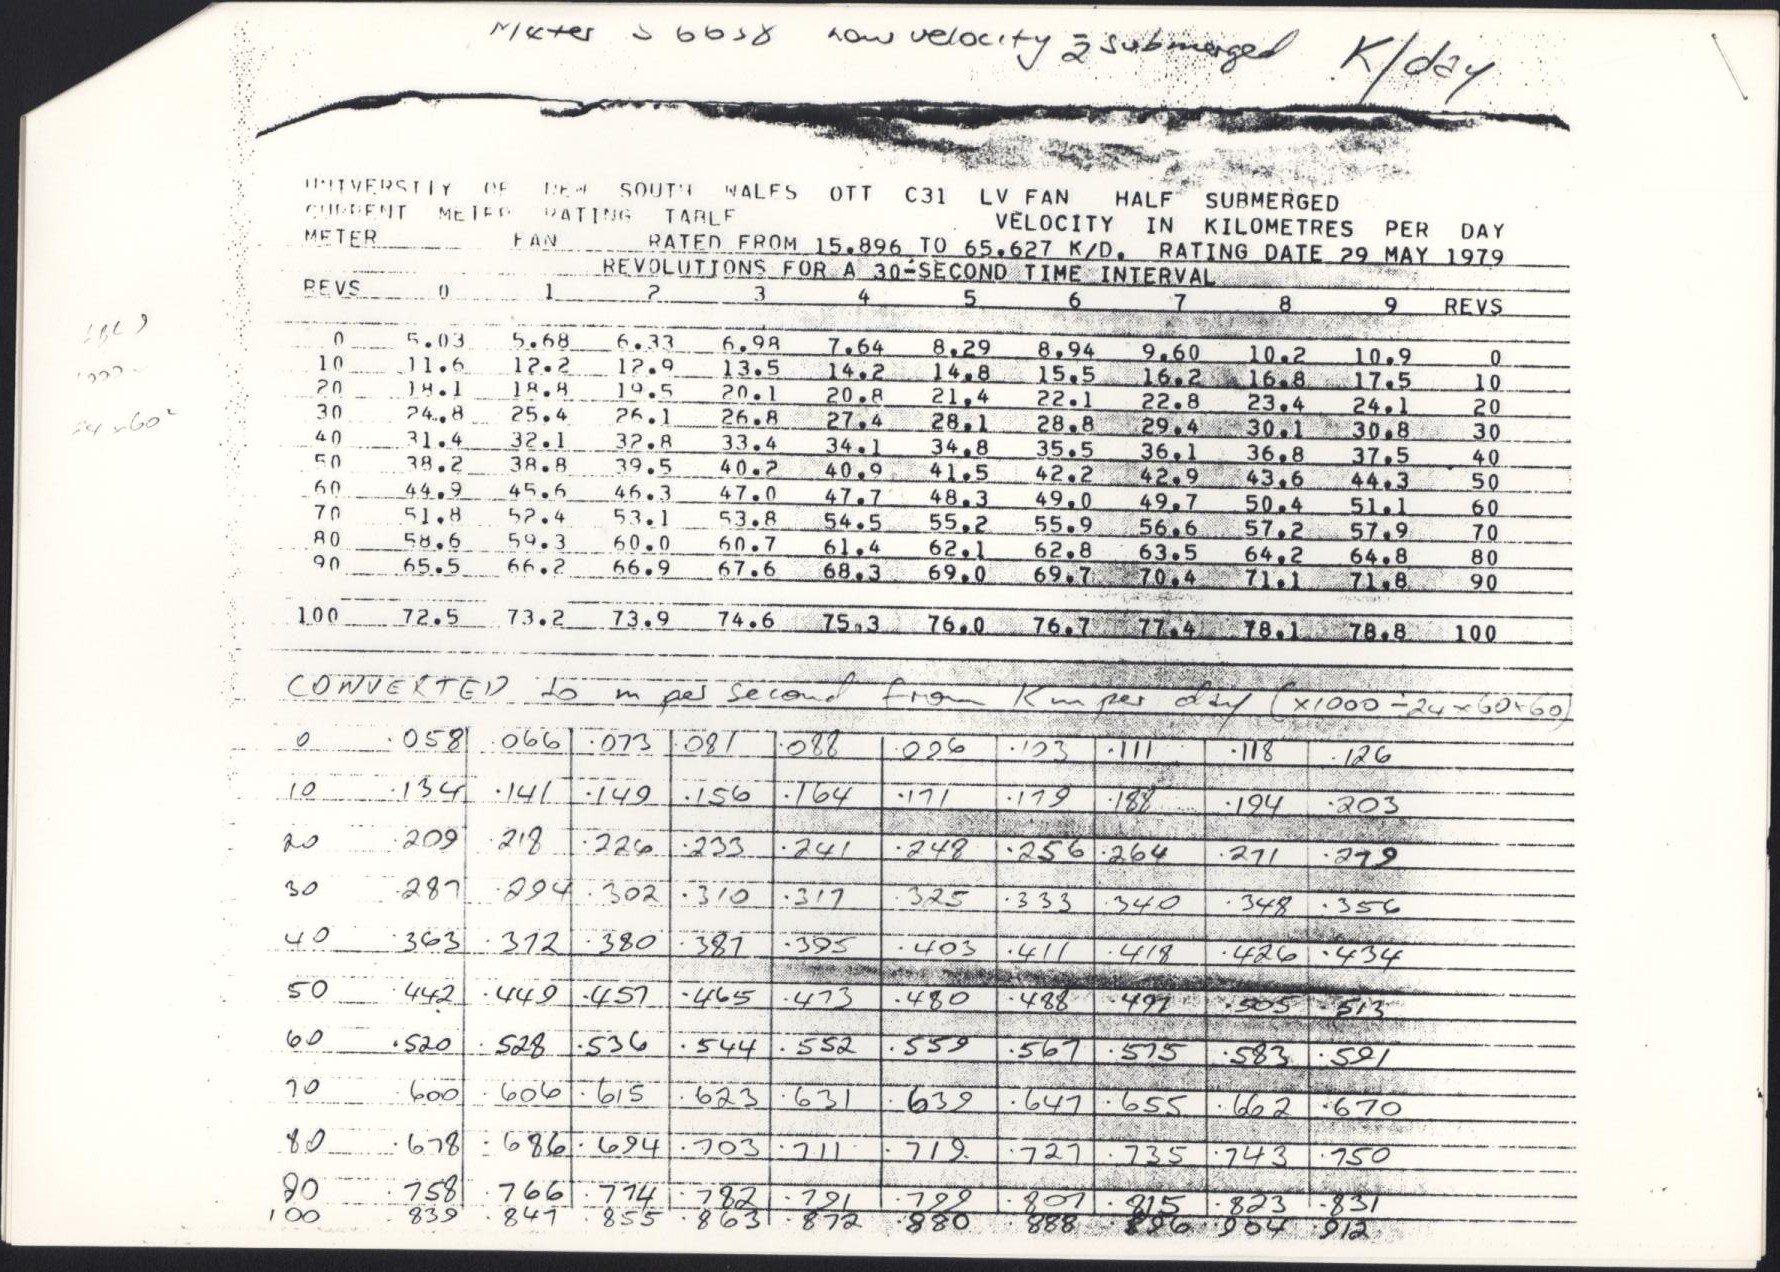 Meter S 6658 low velocity ½ submerged K/day
UNIVERSITY OF NEW SOUTH WALES OTT C31 LV FAN HALF SUBMERGED
CURRENT METER RATING TABLE VELOCITY IN KILOMETRES PER DAY
METER FAN RATED FROM 15.896 TO 65.627 K/D. RATING DATE 29 MAY 1979
REVOLUTIONS FOR A 30-SECOND TIME INTERVAL
REVS 0 1 2 3 4 5 6 7 8 9 REVS
0 5.03 5.68 6.33 6.98 7.64 8.29 8.94 9.60 10.2 10.9 0
10 11.6 12.2 12.9 13.5 14.2 14.8 15.5 16.2 16.8 17.5 10
20 18.1 18.8 19.5 20.1 20.8 21.4 22.1 22.8 23.4 24.1 20
30 24.8 25.4 26.1 26.8 27.4 28.1 28.8 29.4 30.1 30.8 30
40 31.4 32.1 32.8 33.4 34.1 34.8 35.5 36.1 36.8 37.5 40
50 38.2 38.8 39.5 40.2 40.9 41.5 42.2 42.9 43.6 44.3 50
60 44.9 45.6 46.3 47.0 47.7 48.3 49.0 49.7 50.4 51.1 60
70 51.8 52.4 53.1 53.8 54.5 55.2 55.9 56.6 57.2 57.9 70
80 58.6 59.3 60.0 60.7 61.4 62.1 62.8 63.5 64.2 64.8 80
90 65.5 66.2 66.9 67.6 68.3 69.0 69.7 70.4 71.1 71.8 90
100 72.5 73.2 73.9 74.6 75.3 76.0 76.7 77.4 78.1 78.8 100
1000
24 x 60²
CONVERTED to m per second from Km per day (x1000 ÷ 24 x 60 x 60)
0 .058 .066 .073 .081 .088 .096 .103 .111 .118 .126
10 .134 .141 .149 .156 .164 .171 .179 .188 .194 .203
20 .209 .218 .226 .233 .241 .248 .256 .264 .271 .279
30 .287 .294 .302 .310 .317 .325 .333 .340 .348 .356
40 .363 .372 .380 .387 .395 .403 .411 .418 .426 .434
50 .442 .449 .457 .465 .473 .480 .488 .497 .505 .513
60 .520 .528 .536 .544 .552 .559 .567 .575 .583 .591
70 .600 .606 .615 .623 .631 .639 .647 .655 .662 .670
80 .678 .686 .694 .703 .711 .719 .727 .735 .743 .750
90 .758 .766 .774 .782 .791 .799 .807 .815 .823 .831
100 .839 .847 .855 .863 .872 .880 .888 .896 .904 .912